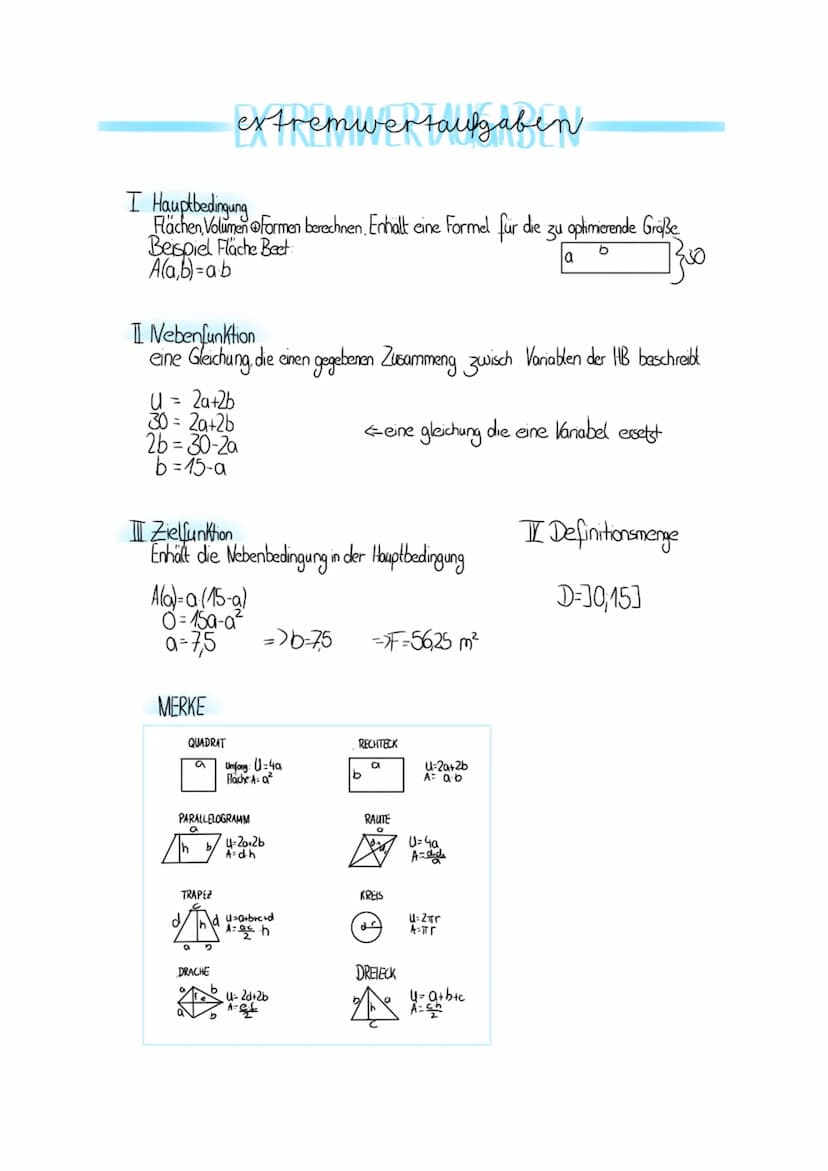 EXTREMWERTAUFGABEN
extremwertaufgaben
I Hauptbedingung
Flächen, Volumen ⊕ Formen berechnen. Enhält eine Formel für die zu optimierende Größe
Beispiel Fläche Beet:
A(a,b)=a·b
a b 30
II Nebenfunktion
eine Gleichung, die einen gegebenen Zusammeng zwisch Variablen der HB baschreibt
U = 2a+2b
30 = 2a+2b
2b = 30-2a
b = 15-a
←eine gleichung die eine Variabel ersetzt
III Zielfunktion
Enhält die Nebenbedingung in der Hauptbedingung
A(a)=a·(15-a)
0=15a-a²
a=7,5 =>b=7,5 =>F=56,25 m²
IV Definitionsmenge
D=]0;15]
MERKE
QUADRAT
a
Umfang: U=4a
Fläche: A=a²
RECHTECK
a
b
U=2a+2b
A= a·b
PARALLELOGRAMM
a
h b
U=2a+2b
A=a·h
RAUTE
a
U=4a
TRAPEZ
c
d h d
a b
U=a+b+c+d
A=ac/2 ·h
KREIS
d r
U=2πr
A=πr
DRACHE
a b
f e
a b
U=2a+2b
A=e·f/2
DREIECK
b h a
c
U=a+b+c
A=ch/2